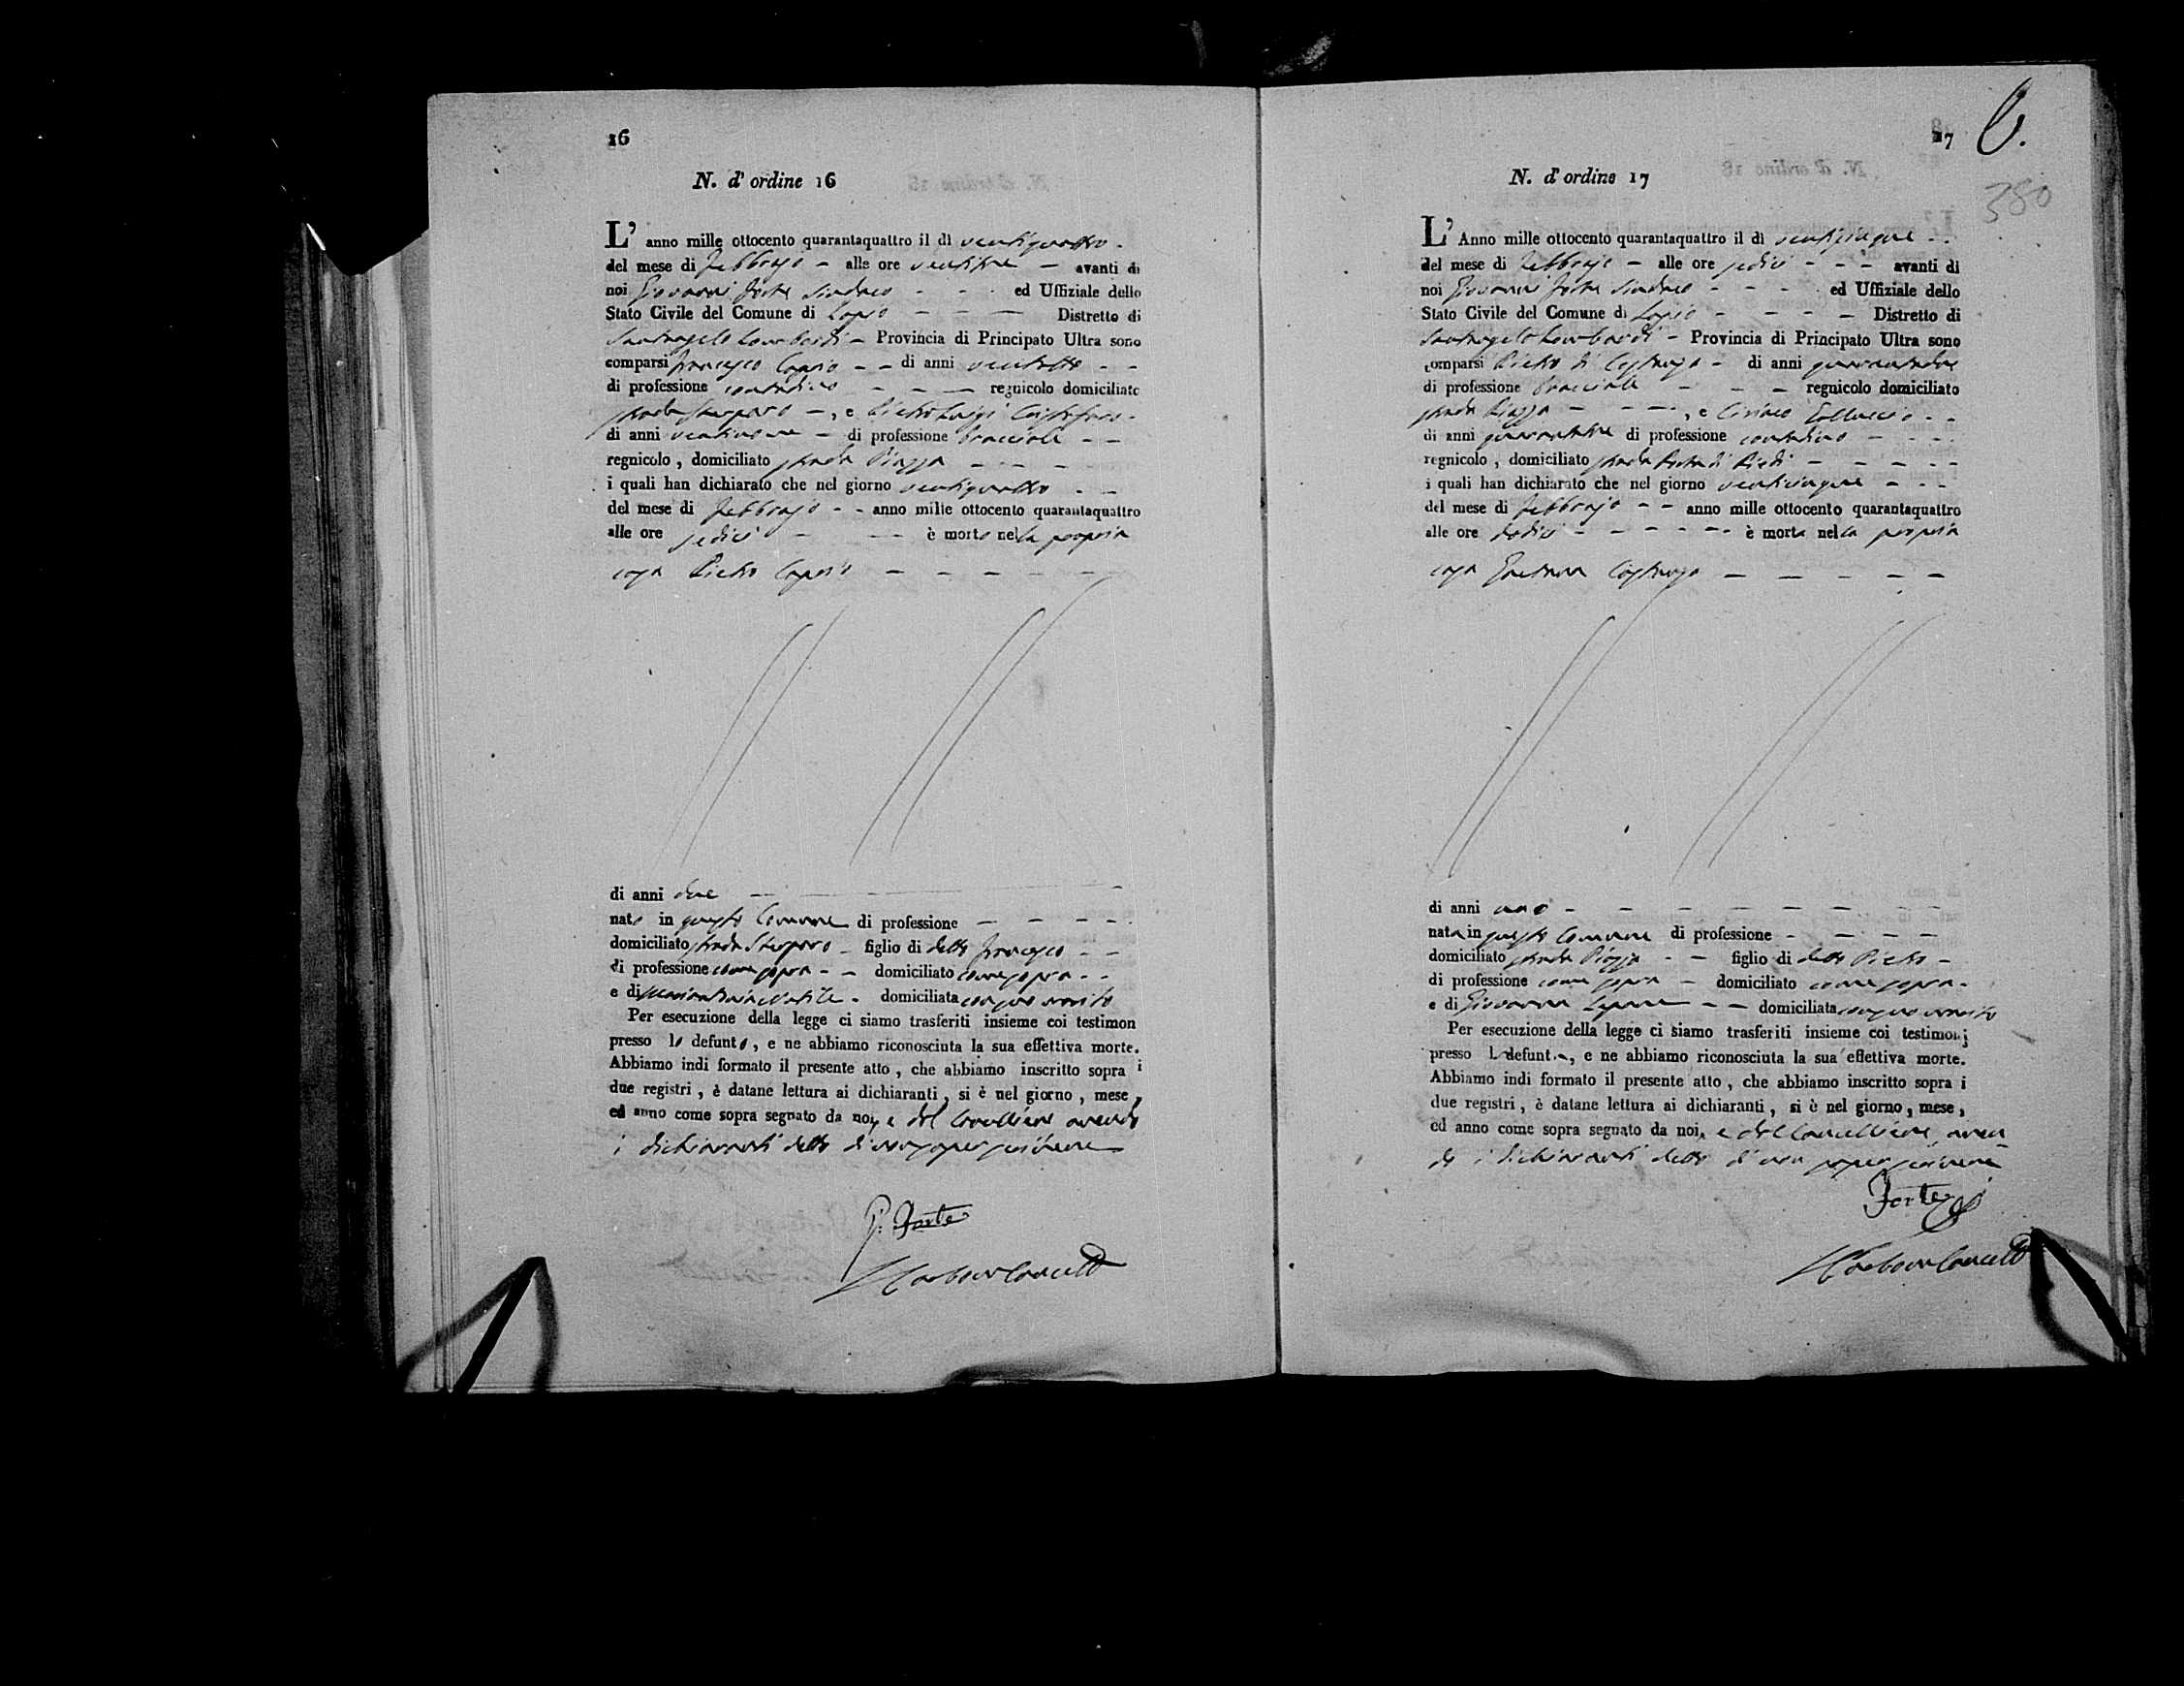 16
N. d' ordine 16
L' anno mille ottocento quarantaquattro il dì ventiquattro
del mese di Febbrajo – alle ore ventitre – avanti di
noi Giovanni Forte Sindaco ed Uffiziale dello
Stato Civile del Comune di Lapio Distretto di
Santangelo Lombardi – Provincia di Principato Ultra sono
comparsi Francesco Caprio di anni ventotto
di professione contadino regnicolo domiciliato
strada, e Pietro Luigi
di anni ventinove di professione bracciale
regnicolo, domiciliato strada Piazza
i quali han dichiarato che nel giorno ventiquattro
del mese di Febbrajo anno mille ottocento quarantaquattro
alle ore sedici è morto nella propria
casa Pietro Caprio
di anni due
nato in questo Comune di professione
domiciliato strada figlio di detto Francesco
di professione come sopra domiciliato come sopra
e di domiciliata con suo marito
Per esecuzione della legge ci siamo trasferiti insieme coi testimon
presso lo defunto, e ne abbiamo riconosciuta la sua effettiva morte.
Abbiamo indi formato il presente atto, che abbiamo inscritto sopra i
due registri, è datane lettura ai dichiaranti, si è nel giorno, mese,
ed anno come sopra segnato da noi, e dal Cancelliere avendo
i dichiaranti detto di non saper scrivere
G. Forte
17
6.
380
N. d' ordine 17
L' Anno mille ottocento quarantaquattro il dì venticinque
del mese di Febbrajo – alle ore sedici avanti di
noi Giovanni Forte Sindaco ed Uffiziale dello
Stato Civile del Comune di Lapio Distretto di
Santangelo Lombardi – Provincia di Principato Ultra sono
comparsi Pietro di anni
di professione bracciale regnicolo domiciliato
strada Piazza, e Ciriaco
di anni di professione contadino
regnicolo, domiciliato strada
i quali han dichiarato che nel giorno venticinque
del mese di Febbrajo anno mille ottocento quarantaquattro
alle ore dodici è morta nella propria
casa Gaetana
di anni uno
nata in questo Comune di professione
domiciliato strada Piazza figlio di detto Pietro
di professione come sopra domiciliato come sopra
e di Giovanna domiciliata con suo marito
Per esecuzione della legge ci siamo trasferiti insieme coi testimonj
presso la defunta, e ne abbiamo riconosciuta la sua effettiva morte.
Abbiamo indi formato il presente atto, che abbiamo inscritto sopra i
due registri, è datane lettura ai dichiaranti, si è nel giorno, mese,
ed anno come sopra segnato da noi, e dal Cancelliere, aven
do i dichiaranti detto di non saper scrivere
Forte